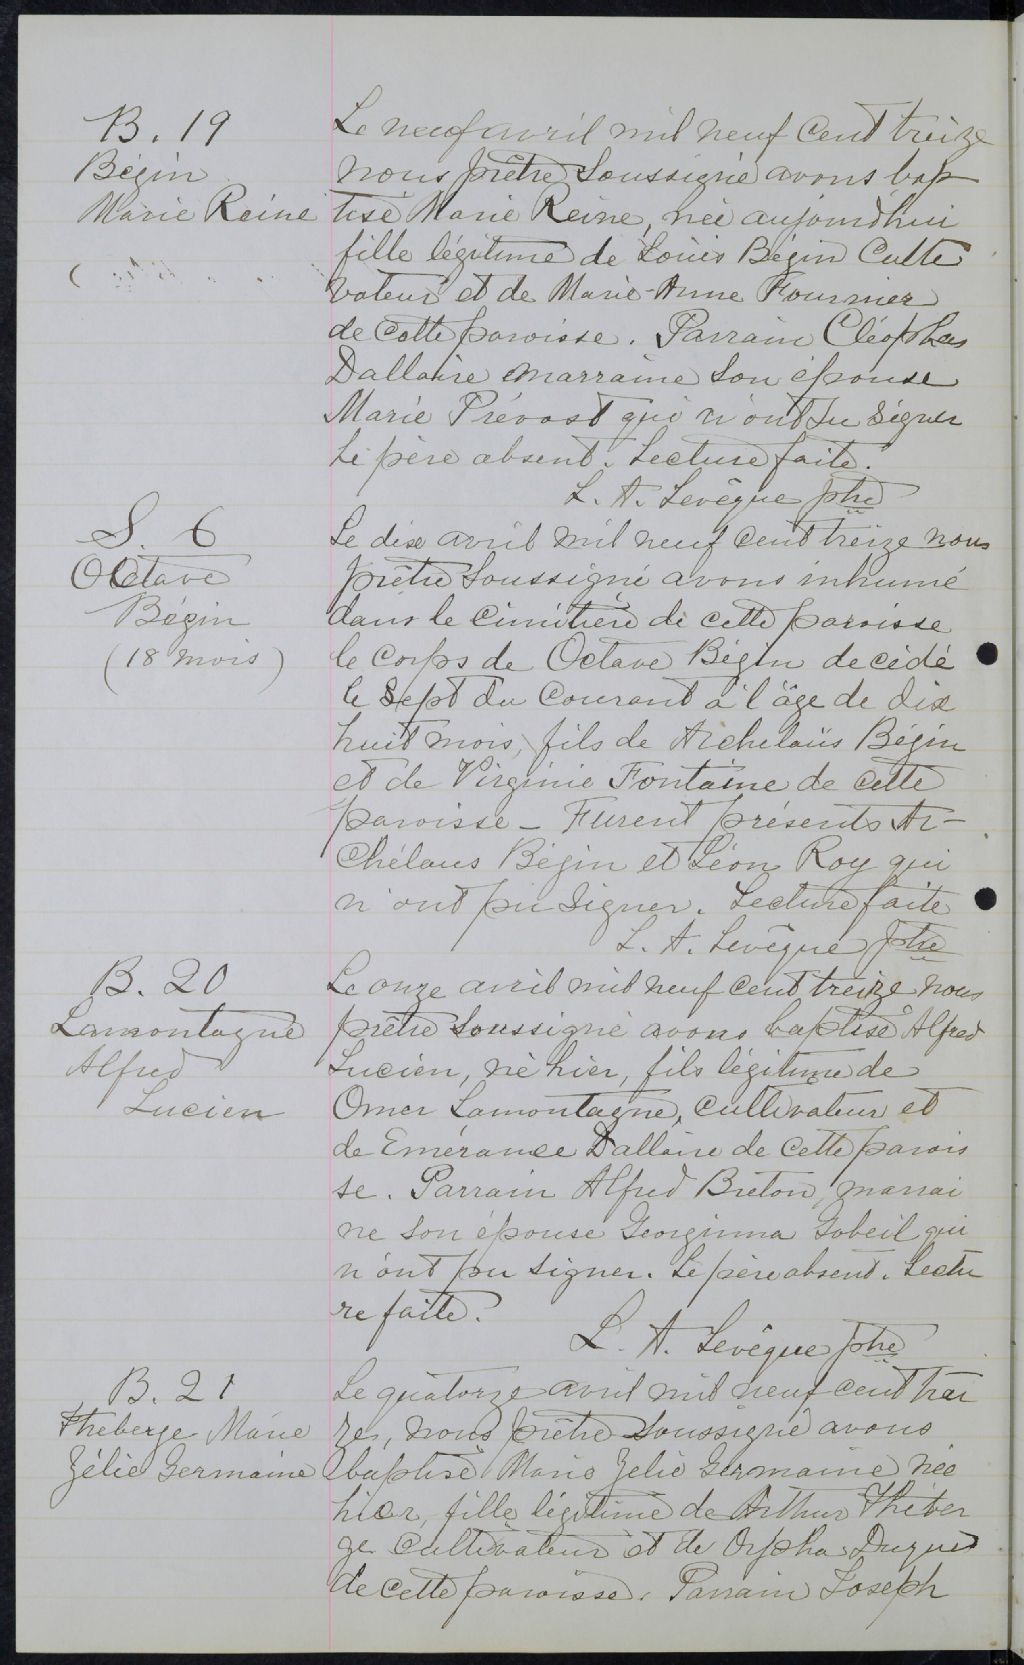 B. 19
Bégin
Marie Reine
Le neuf avril mil neuf cent treize
nous prêtre soussigné avons bap
tisé Marie Reine, née aujourd'hui
fille légitime de Louis Bégin Culti
vateur et de Marie-Anne Fournier
de cette paroisse. Parrain Cléophas
Dallaire marraine son épouse
Marie Prévost qui n'ont su signer
Le père absent. Lecture faite.
L. A. Levêque ptre
S. 6
Octave
Bégin
(18 mois)
Le dix avril mil neuf cent treize nous
prêtre soussigné avons inhumé
dans le cimitière de cette paroisse
le corps de Octave Bégin decédé
le sept du courant à l'âge de dix
huit mois, fils de Archelaüs Bégin
et de Virginie Fontaine de cette
paroisse - Furent présents Ar-
chélaus Bégin et Léon Roy qui
n'ont pu signer. Lecture faite
L. A. Levêque ptre
B. 20
Lamontagne
Alfred
Lucien
Le onze avril mil neuf cent treize nous
prêtre soussigné avons baptisé Alfred
Lucien, né hier, fils légitime de
Omer Lamontagne, cultivateur et
de Emérance Dallaire de cette parois
se. Parrain Alfred Breton, marrai
ne son épouse Georginna Gobeil qui
n'ont pu signer. Le père absent. Lectu
re faite.
L. A. Levêque ptre
B. 21
Theberge Marie
Zélie Germaine
Le quatorze avril mil neuf cent trei
ze, nous prêtre soussigné avons
baptisé Marie Zelie Germaine née
hier, fille légitime de Arthur Théber
ge cultivateur et de Orpha Duquet
de cette paroisse. Parrain Joseph